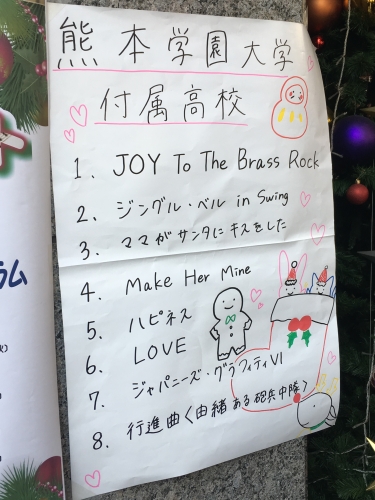 熊本学園大学
付属高校
1. JOY To The Brass Rock
2. ジングル・ベル in Swing
3. ママがサンタにキスをした
4. Make Her Mine
5. ハピネス
6. LOVE
7. ジャパニーズ・グラフィティVI
8. 行進曲〈由緒ある砲兵中隊〉
ラム